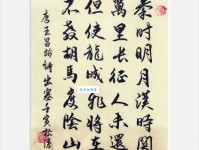 秦時明月漢時關
萬里長征人未還
但使龍城飛將在
不教胡馬度陰山
唐王昌齡詩出塞壬寅